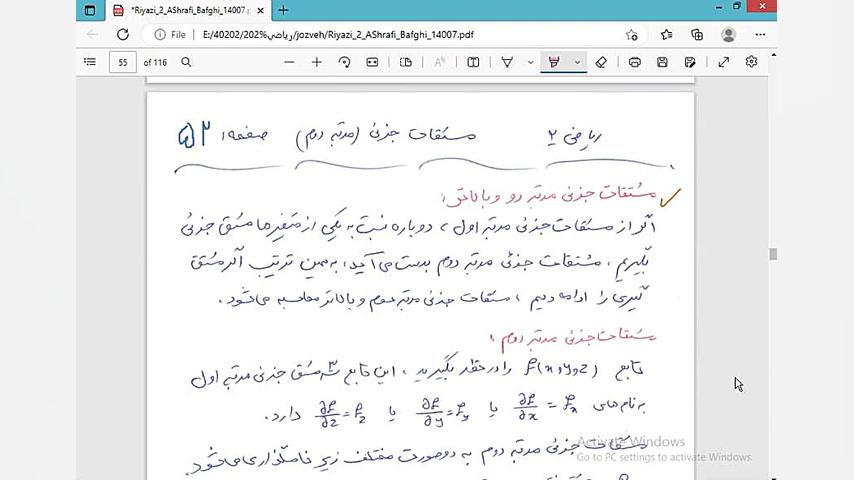 *Riyazi_2_AShrafi_Bafghi_14007.
File
E:/40202/202%ریاضی/jozveh/Riyazi_2_AShrafi_Bafghi_14007.pdf
55 of 116
ریاضی ۲ مشتقات جزئی (مرتبه دوم) صفحه: ۵۳
مشتقات جزئی مرتبه دو و بالاتر:
اگر از مشتقات جزئی مرتبه اول، دوباره نسبت به یکی از متغیرها مشتق جزئی
بگیریم، مشتقات جزئی مرتبه دوم بدست می‌آید، به همین ترتیب اگر مشتق
گیری را ادامه دهیم، مشتقات جزئی مرتبه سوم و بالاتر محاسبه می‌شود.
مشتقات جزئی مرتبه دوم:
تابع f(x,y,z) را در نظر بگیرید، این تابع ۳ مشتق جزئی مرتبه اول
به نام‌های ∂f/∂x = fx یا ∂f/∂y = fy یا ∂f/∂z = fz دارد.
مشتقات جزئی مرتبه دوم به دو صورت مختلف زیر نامگذاری می‌شود.
Activate Windows
Go to PC settings to activate Windows.